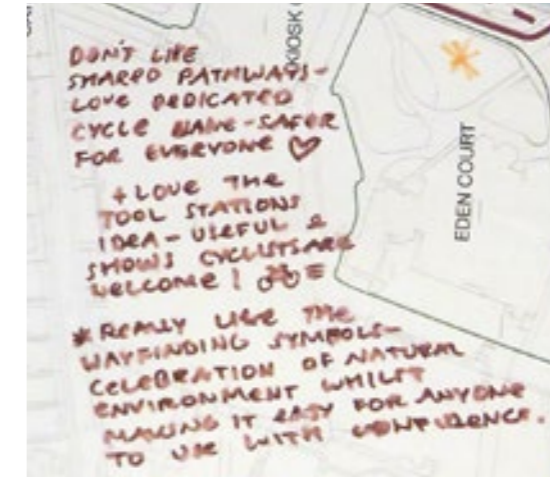 DON'T LIKE
SHARED PATHWAYS-
LOVE DEDICATED
CYCLE LANE-SAFER
FOR EVERYONE ♡
+ LOVE THE
TOOL STATIONS
IDEA - USEFUL &
SHOWS CYCLISTS ARE
WELCOME!
* REALLY LIKE THE
WAYFINDING SYMBOLS-
CELEBRATION OF NATURAL
ENVIRONMENT WHILST
MAKING IT EASY FOR ANYONE
TO USE WITH CONFIDENCE.
KIOSK
EDEN COURT